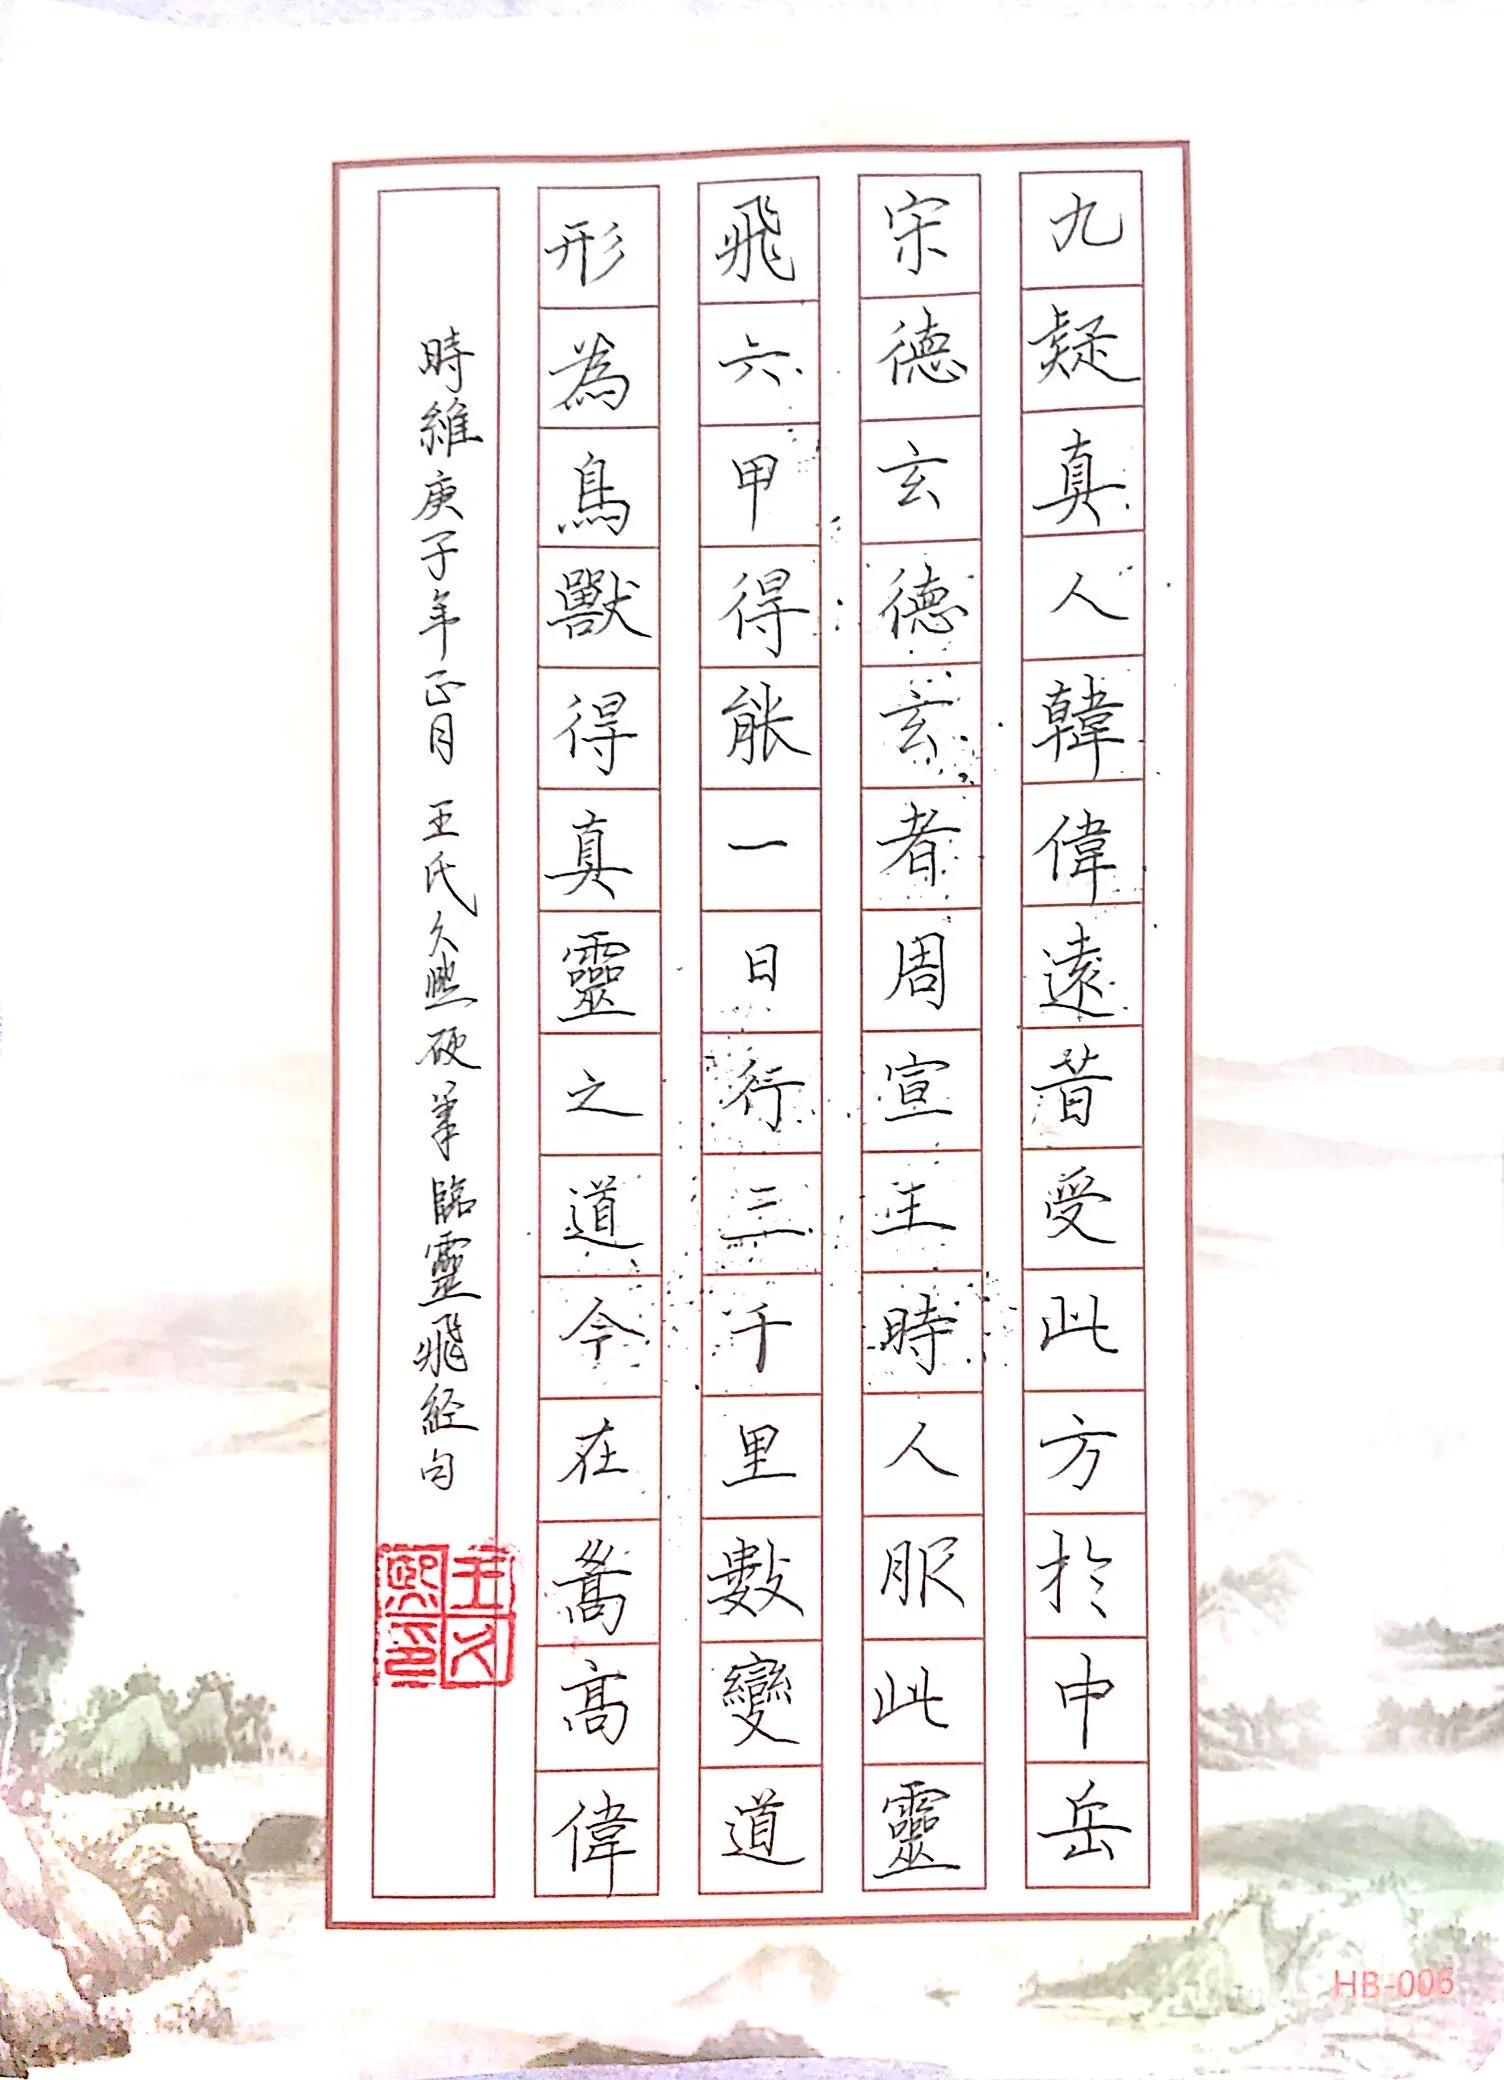 九疑真人韓偉遠昔受此方於中岳
宋德玄德玄者周宣王時人服此靈
飛六甲得能一日行三千里數變道
形為鳥獸得真靈之道今在嵩高偉
時維庚子年正月 王氏久熙硬筆臨靈飛經句
王久熙印
HB-006